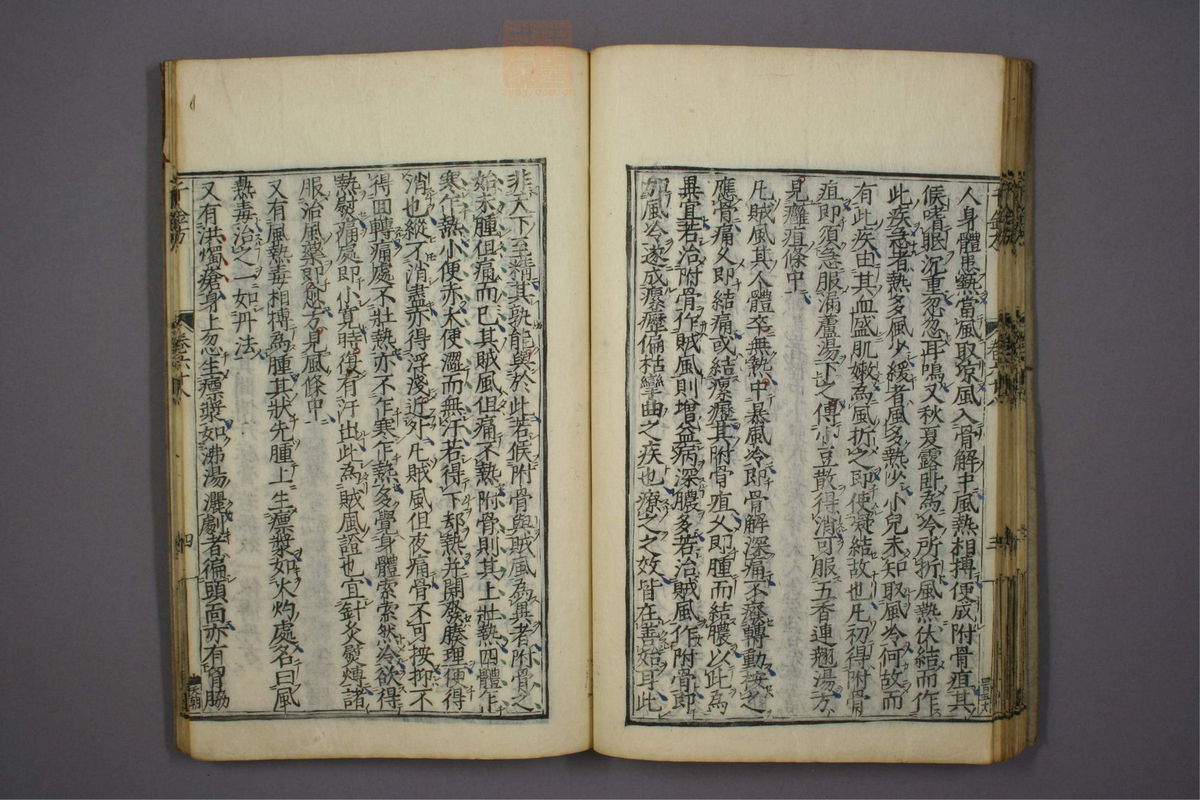 人身體患熱當風取凉風入滑解中風熱相摶便成附骨疽其
候嗜眠沉重忽忽耳鳴又秋夏露卧為冷所折風熱伏結而作
此疾急者熱多風少緩者風多熱少小兒未知取風冷何故而
有此疾由其血盛肌嫩為風折之即便凝結故也凡初得附骨
疽即須急服漏蘆湯下之傅小豆散得消可服五香連翹湯方
見癰疽條中
凡賊風其人體卒無熱中暴風冷即骨解深痛不癈轉動按之
應骨痛久即結痛或結瘰癧其附骨疽久即腫而結膿以此為
異宜若治附骨作賊風則增益病深膿多若治賊風作附骨即
加風冷遂成瘰癧偏枯攣曲之疾也療之之效皆在善始耳此
非天下至精其孰能與於此若候附骨與賊風為異者附骨之
始未腫但痛而已其賊風但痛不熱附骨則其上壯熱四體作
寒作熱小便赤大便澀而無汗若得下却熱并開發腠理便得
消也縱不消盡亦得浮淺近外凡賊風但夜痛骨不可按抑不
得回轉痛處不壯熱亦不作寒作熱多覺身體索索然冷欲得
熱熨痛處即小寬時復有汗出此為賊風證也宜針灸熨煿諸
服治風藥即愈方見風條中
又有風熱毒相摶為腫其狀先腫上生瘭漿如火灼處名曰風
熱毒治之一如丹法
又有洪燭瘡身上忽生瘭漿如沸湯灑劇者徧頭面亦有胷脇
卷六下
三
四